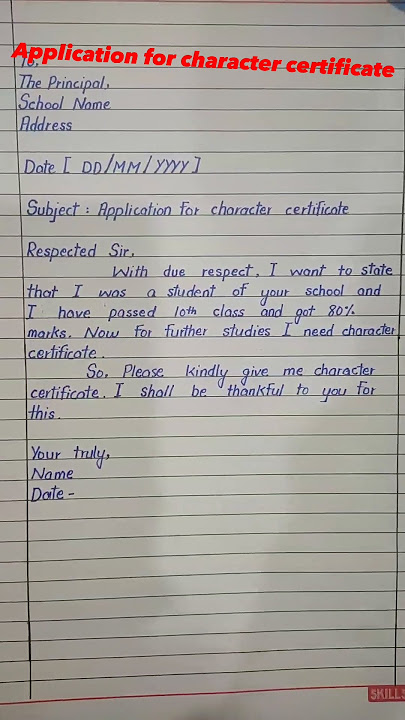 Application for character certificate
To,
The Principal,
School Name
Address
Date [ DD/MM/YYYY ]
Subject : Application for character certificate
Respected Sir,
With due respect, I want to state
that I was a student of your school and
I have passed 10th class and got 80%
marks. Now for further studies I need character
certificate.
So, Please kindly give me character
certificate. I shall be thankful to you for
this.
Your truly,
Name
Date -
SKILLS